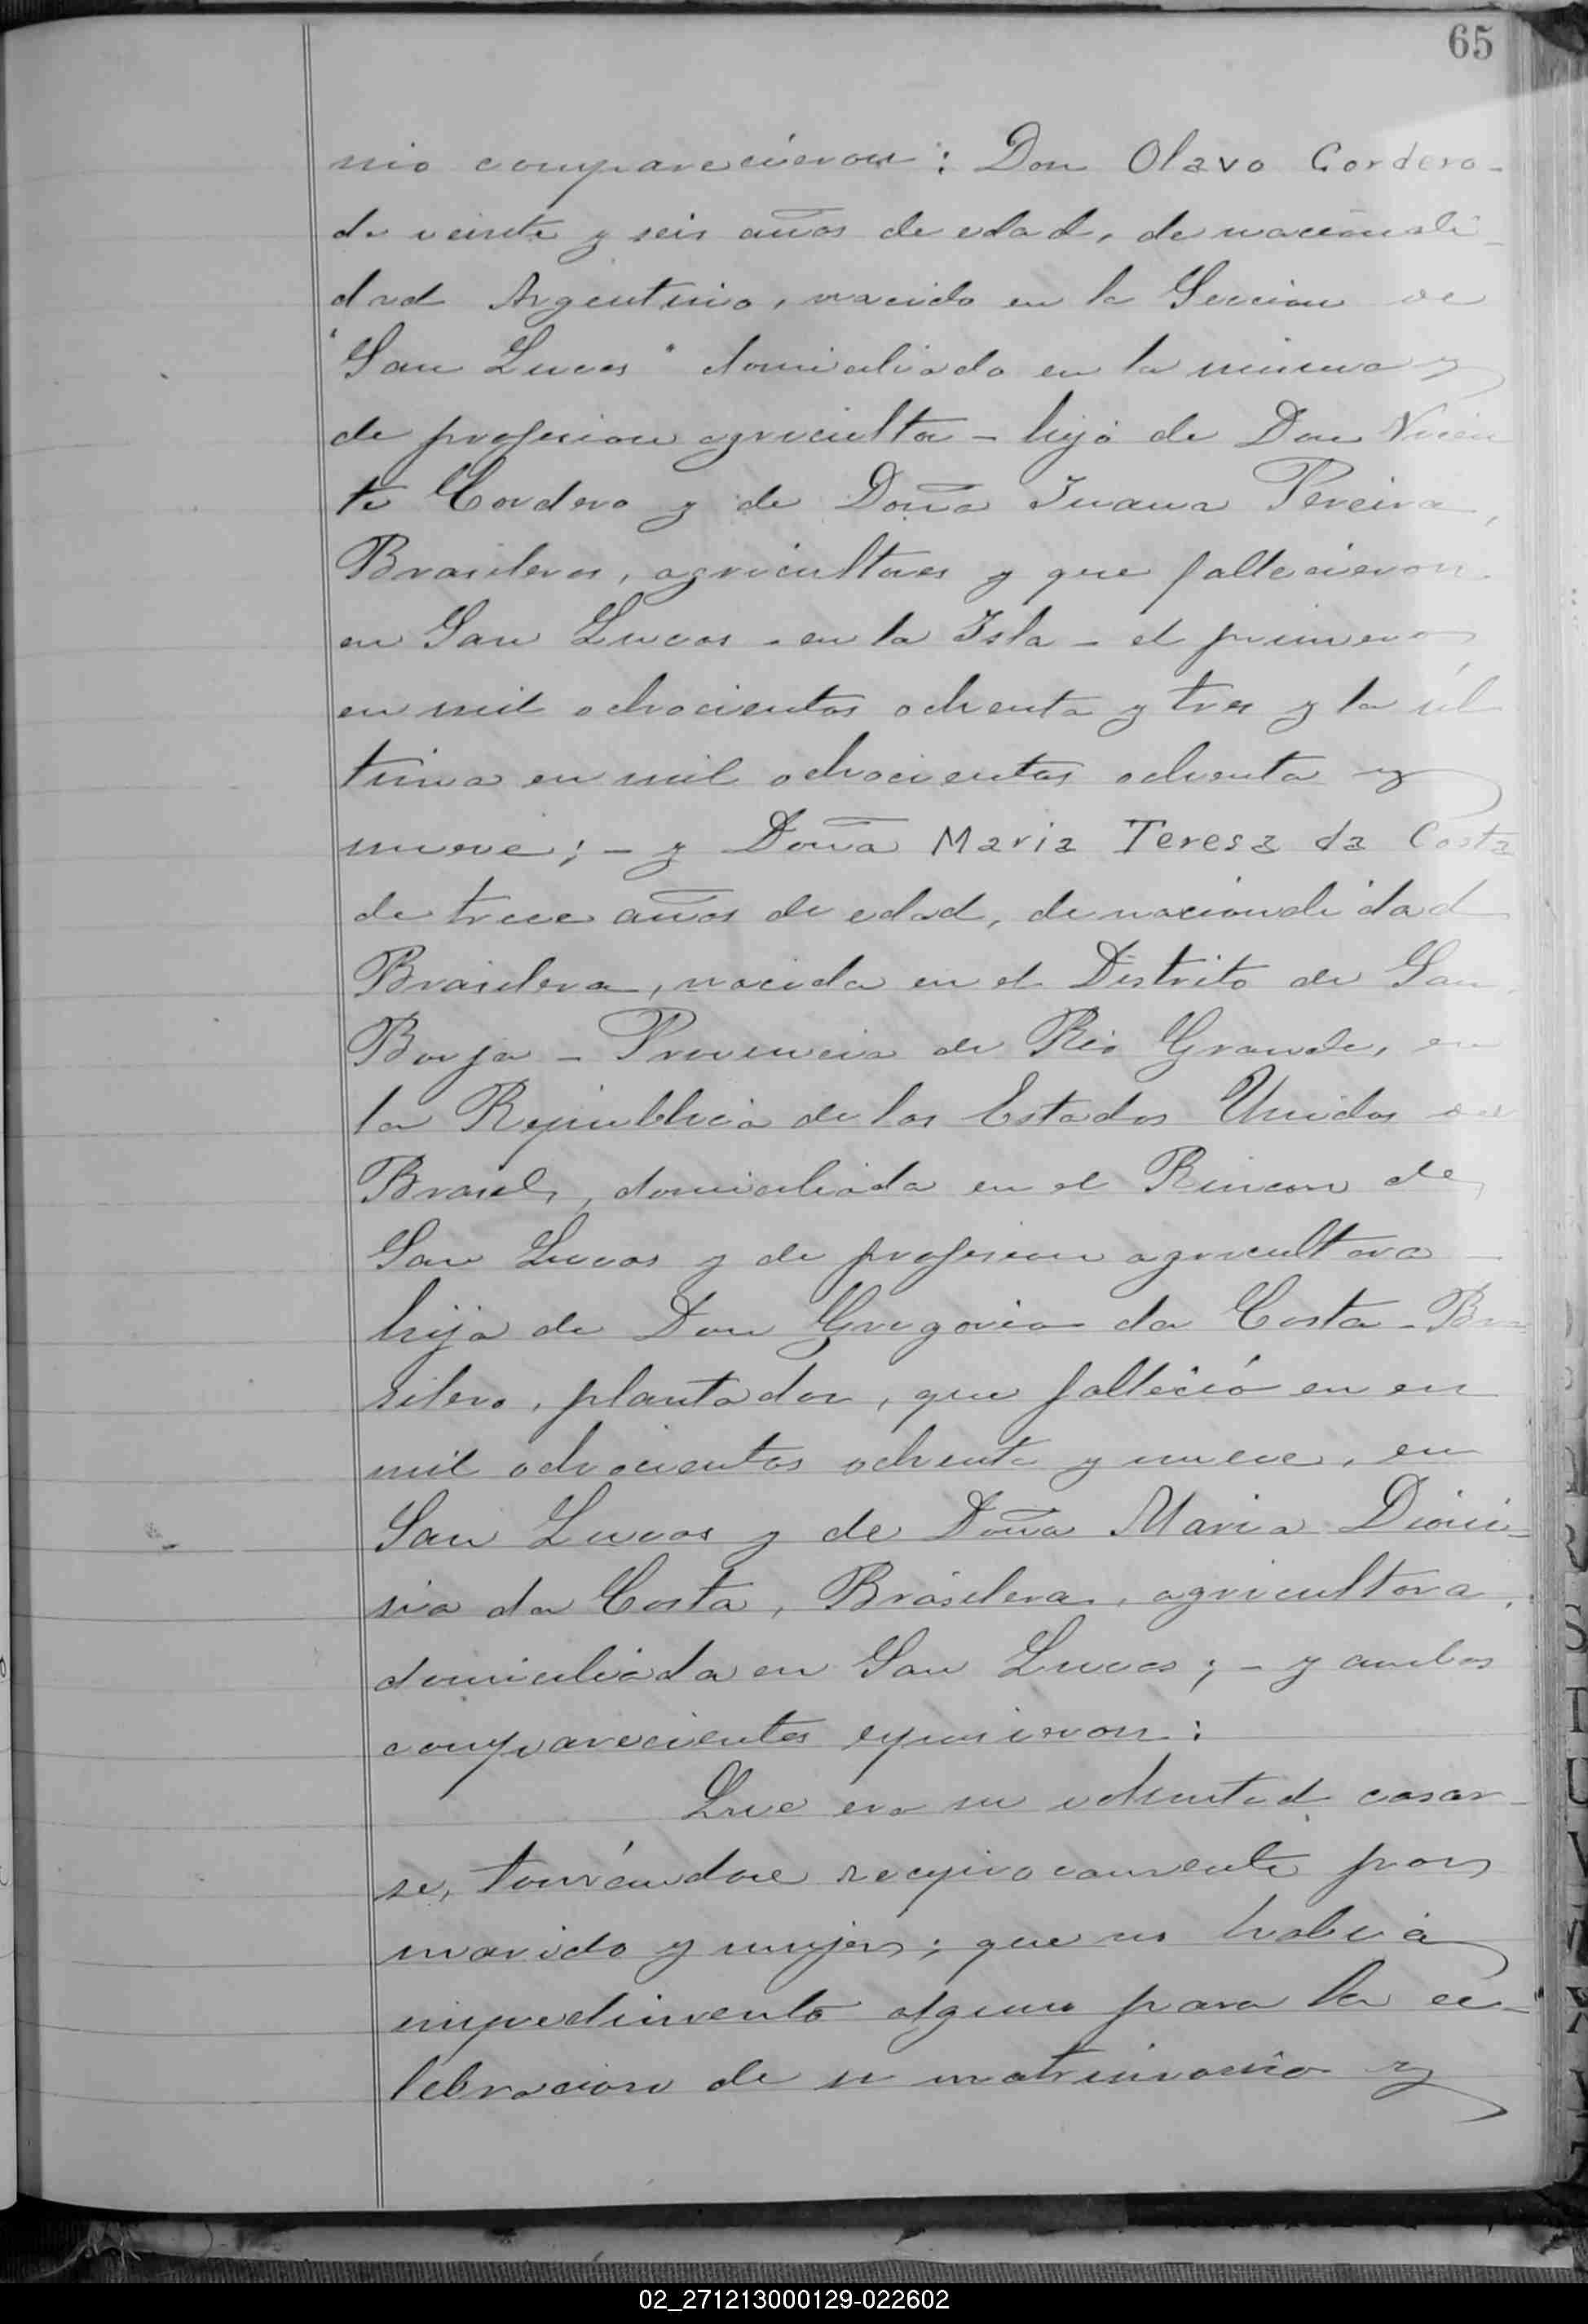 65
nio comparecieron: Don Olavo Cordero-
de veinte y seis años de edad, de nacionali-
dad Argentino, nacido en la Seccion de
"San Lucas" domiciliado en la misma y
de profesion agricultor - hijo de Don Vicen
te Cordero y de Doña Juana Pereira,
Brasileros, agricultores y que fallecieron
en San Lucas - en la Isla - el primero
en mil ochocientos ochenta y tres y la úl
tima en mil ochocientos ochenta y
nueve; - y Doña Maria Teresa da Costa
de trece años de edad, de nacionalidad
Brasilera, nacida en el Distrito de San
Borja - Provincia de Rio Grande, en
la República de los Estados Unidos del
Brasil, domiciliada en el Rincon de
San Lucas y de profesion agricultora -
hija de Don Gregorio da Costa - Bra
silero, plantador, que falleció en en
mil ochocientos ochenta y nueve, en
San Lucas y de Doña Maria Dioni-
sia da Costa, Brasilera, agricultora,
domiciliada en San Lucas; - y ambos
comparecientes expusieron:
Que era su voluntad casar-
se, tomándose reciprocamente por
marido y mujer; que no habia
impedimento alguno para la ce-
lebracion de su matrimonio y
02_271213000129-022602